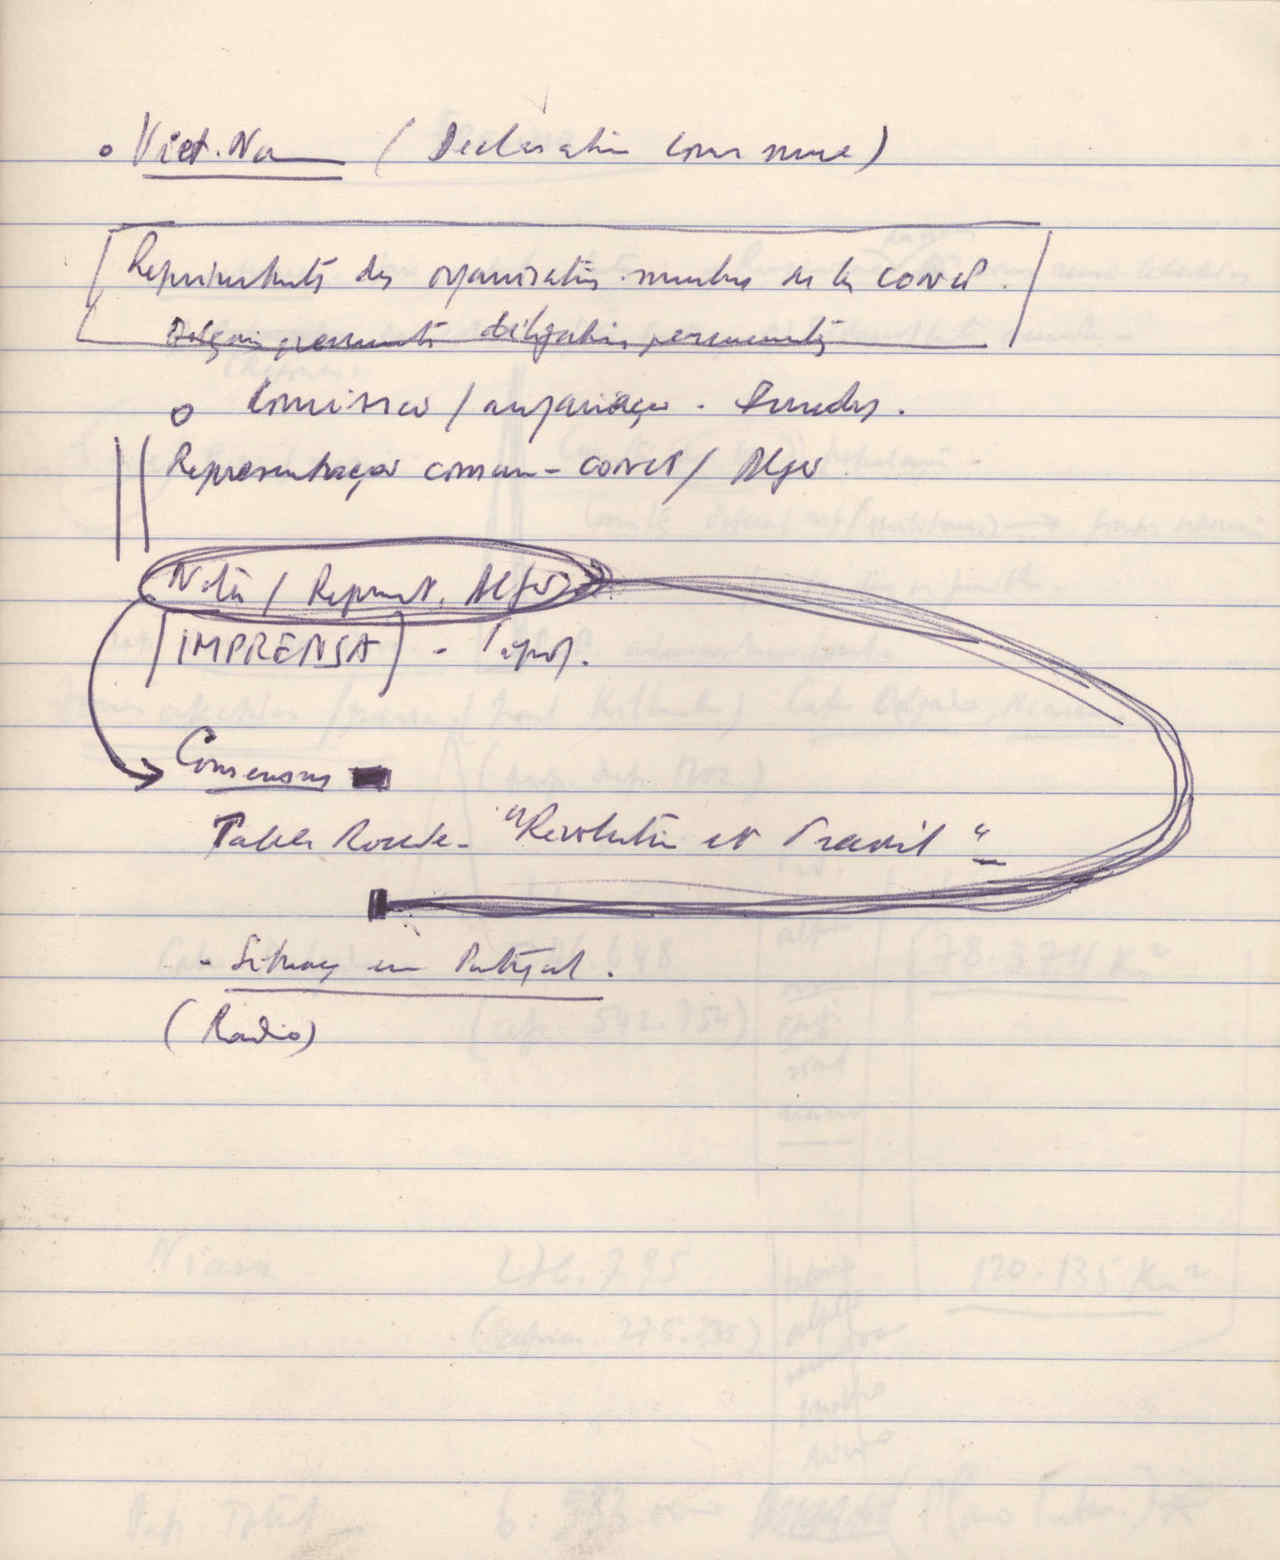 Viet.Nam (Declaration commune)
Représentants des organisations membres de la CONCP.
délégations permanentes
Comissão / organização.
Representação comum - CONCP / Alger
Note / Représent. Alger
[IMPRENSA] -
Consensus
Table Ronde - "Révolution et Travail"
- Situação em Portugal.
(Radio)